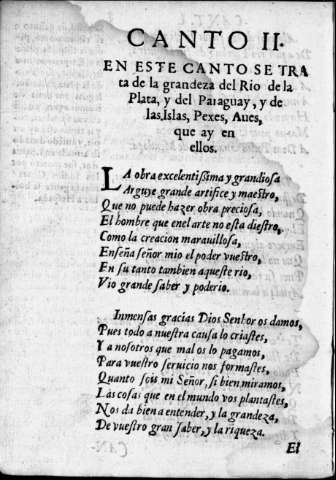 CANTO II.
EN ESTE CANTO SE TRA
ta de la grandeza del Rio de la
Plata, y del Paraguay, y de
las, Islas, Pexes, Aues,
que ay en
ellos.
LA obra excelentissima y grandiosa
Arguye grande artifice y maestro,
Que no puede hazer obra preciosa,
El hombre que enel arte no esta diestro,
Como la creacion marauillosa,
Enseña señor mio el poder vuestro,
En su tanto tambien aqueste rio,
Vio grande saber y poderio.
Inmensas gracias Dios Senhor os damos,
Pues todo a nuestra causa lo criastes,
Y a nosotros que mal os lo pagamos,
Para vuestro seruicio nos formastes,
Quanto sois mi Señor, si bien miramos,
Las cosas que en el mundo vos plantastes,
Nos da bien a entender, y la grandeza,
De vuestro gran saber, y la riqueza.
El